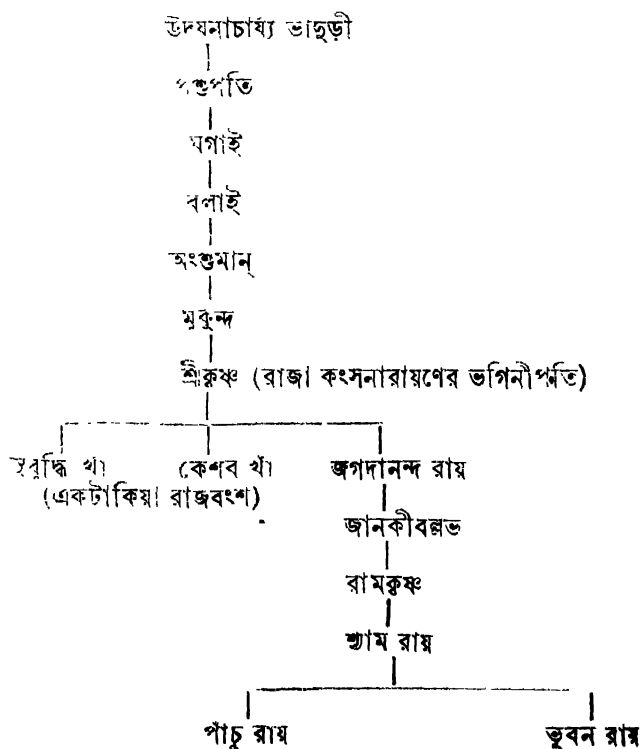 উদয়নাচার্য্য ভাদুড়ী
পশুপতি
মগাই
বলাই
অংশুমান্
মুকুন্দ
শ্রীকৃষ্ণ (রাজা কংসনারায়ণের ভগিনীপতি)
সুবুদ্ধি খাঁ কেশব খাঁ জগদানন্দ রায়
(একটাকিয়া রাজবংশ)
জানকীবল্লভ
রামকৃষ্ণ
শ্যাম রায়
পাঁচু রায় ভুবন রায়